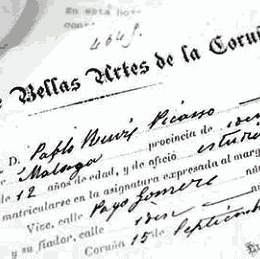 En esta ho
4648.
e Bellas Artes de la Coruñ
D. Pablo Ruiz Picasso
Malaga provincia de idem
e 12 años de edad, y de oficio estudi
matricularse en la asignatura expresada al marg
Vive, calle Payo Gomez nú
y su fiador, calle idem nú
Coruña 15 de Septiembr